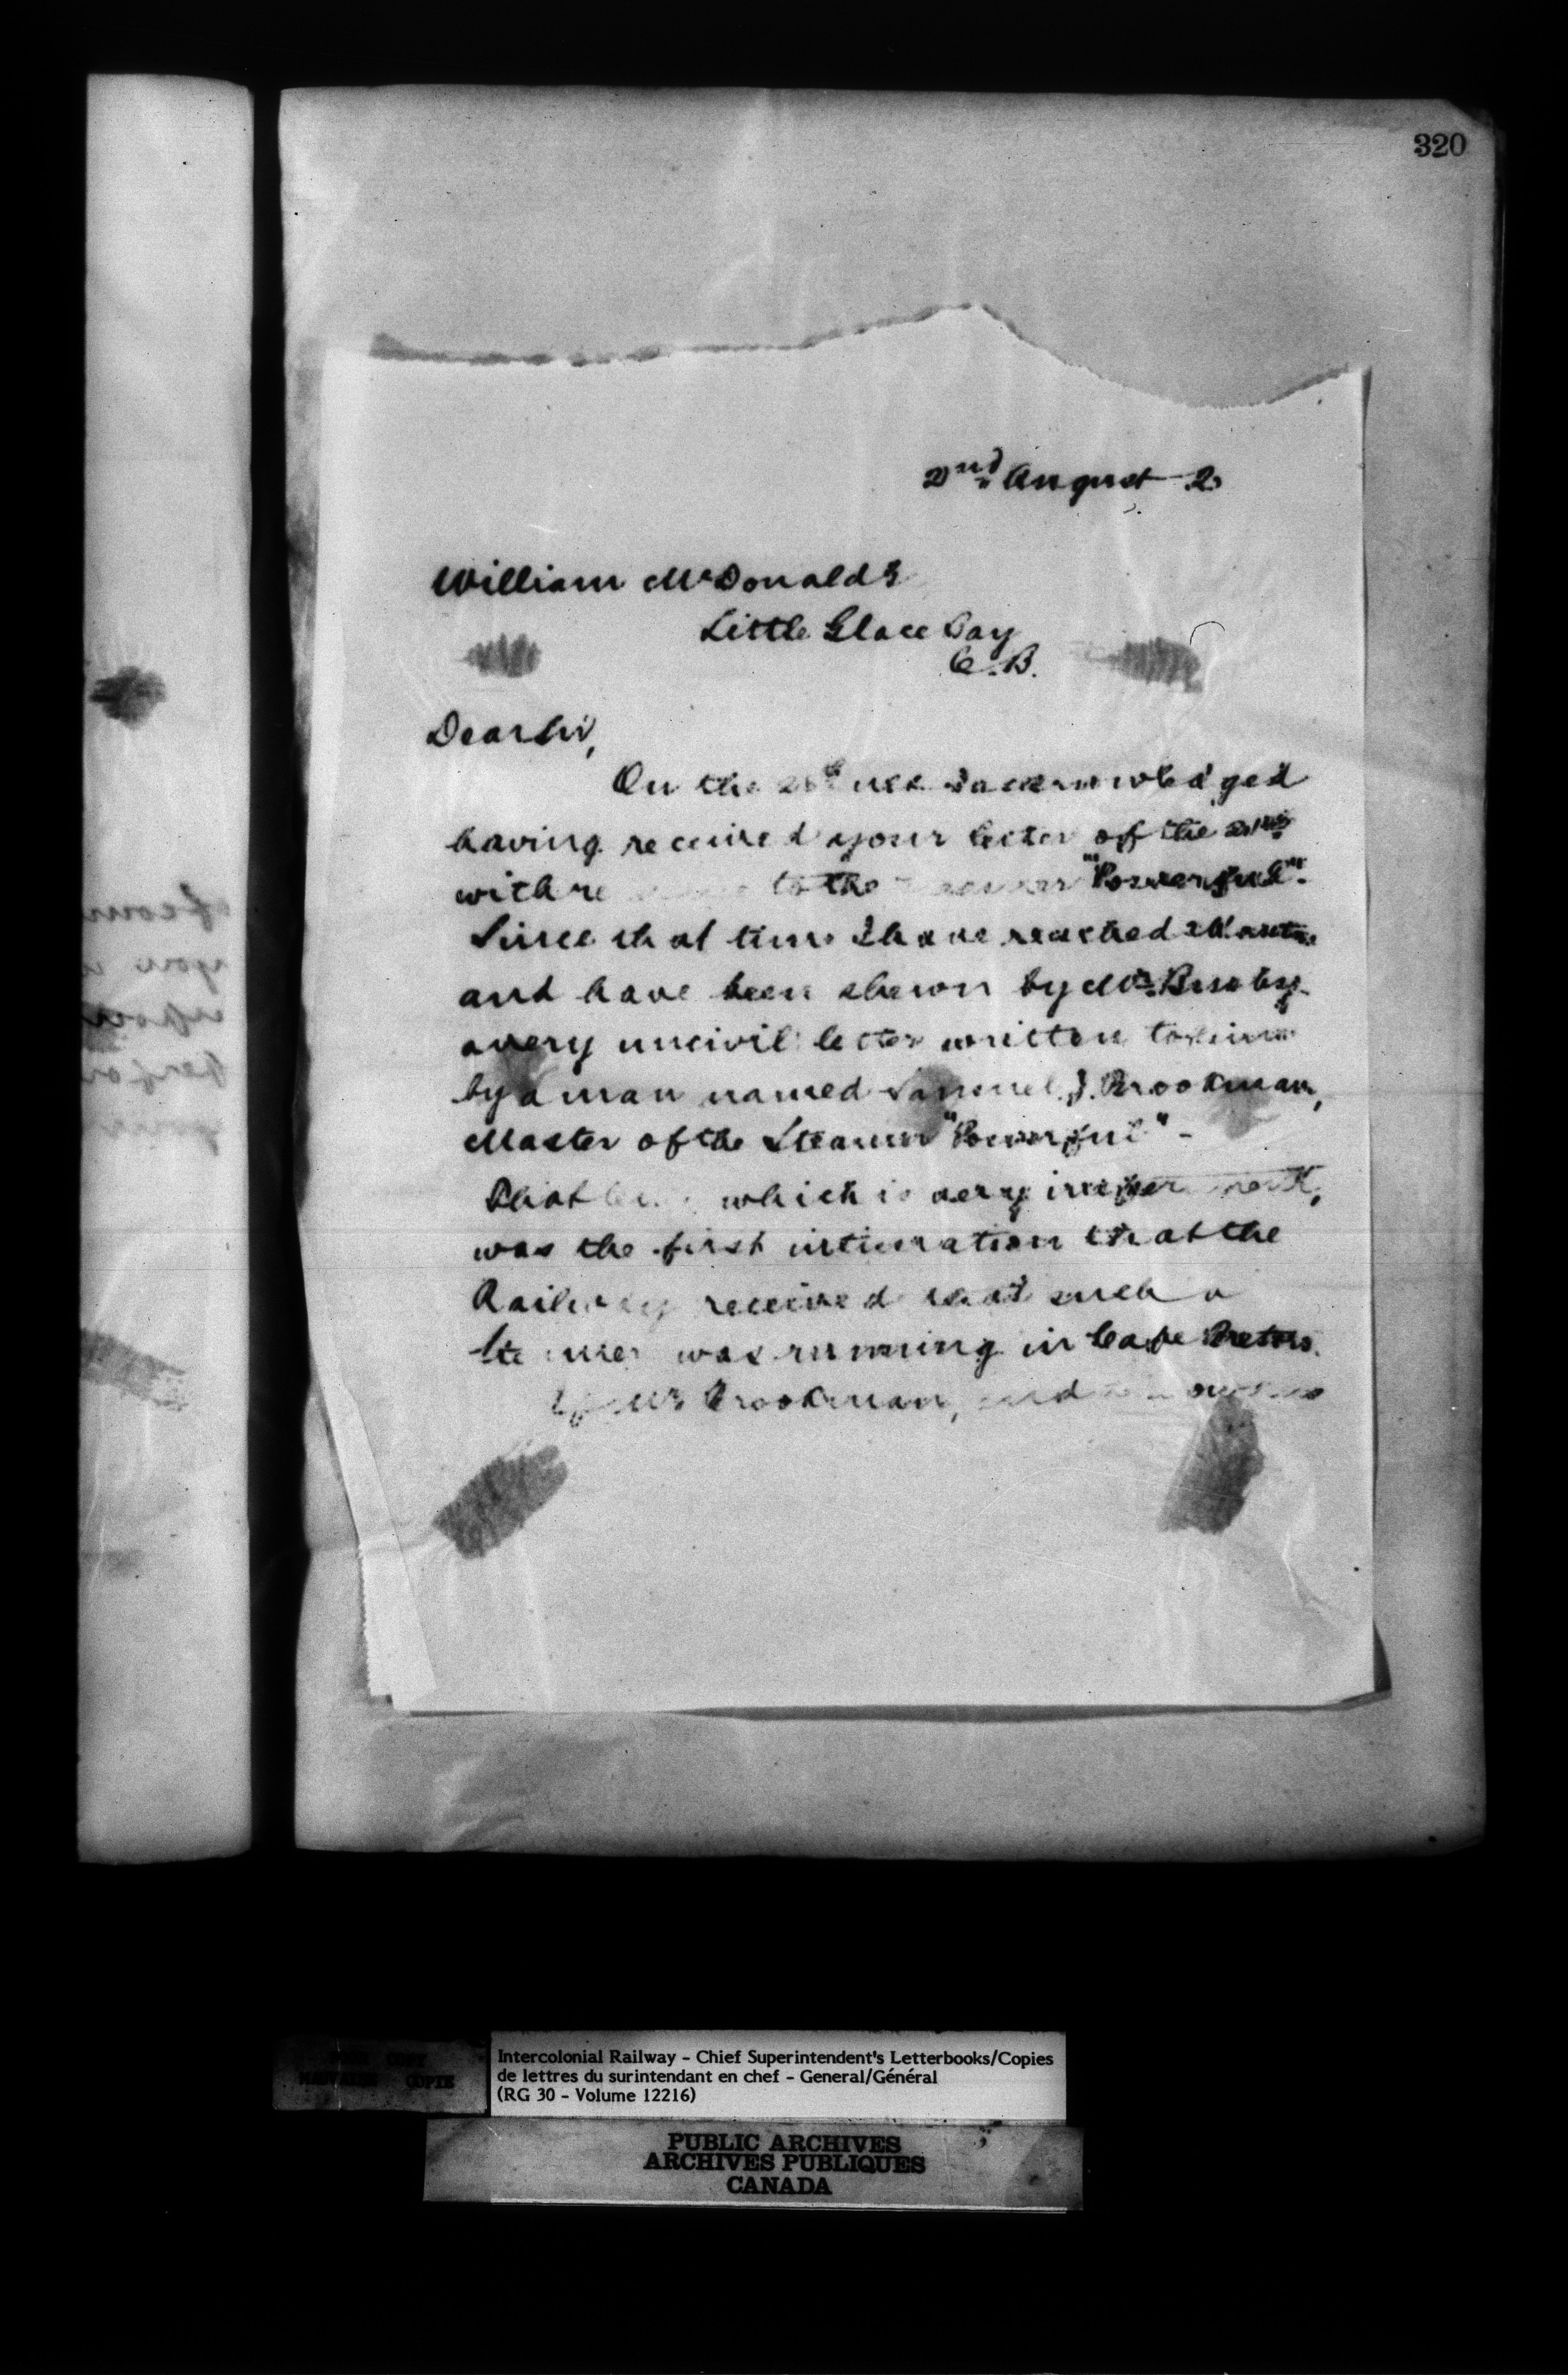 320
2nd August 2
William McDonald
Little Glace Bay
C.B.
Dear Sir,
On the ult. I acknowledged
having received your letter of the
with to the "Powerful".
Since that time I have reached
and have been shewn by Mr. Busby
a very uncivil letter written to him
by a man named Samuel J. Brookman,
Master of the Steamer "Powerful" -
That which is very impertinent,
was the first intimation that the
Railway received that such a
Steamer was running in Cape Breton.
If Mr Brookman, and
Intercolonial Railway - Chief Superintendent's Letterbooks/Copies
de lettres du surintendant en chef - General/Général
(RG 30 - Volume 12216)
PUBLIC ARCHIVES
ARCHIVES PUBLIQUES
CANADA